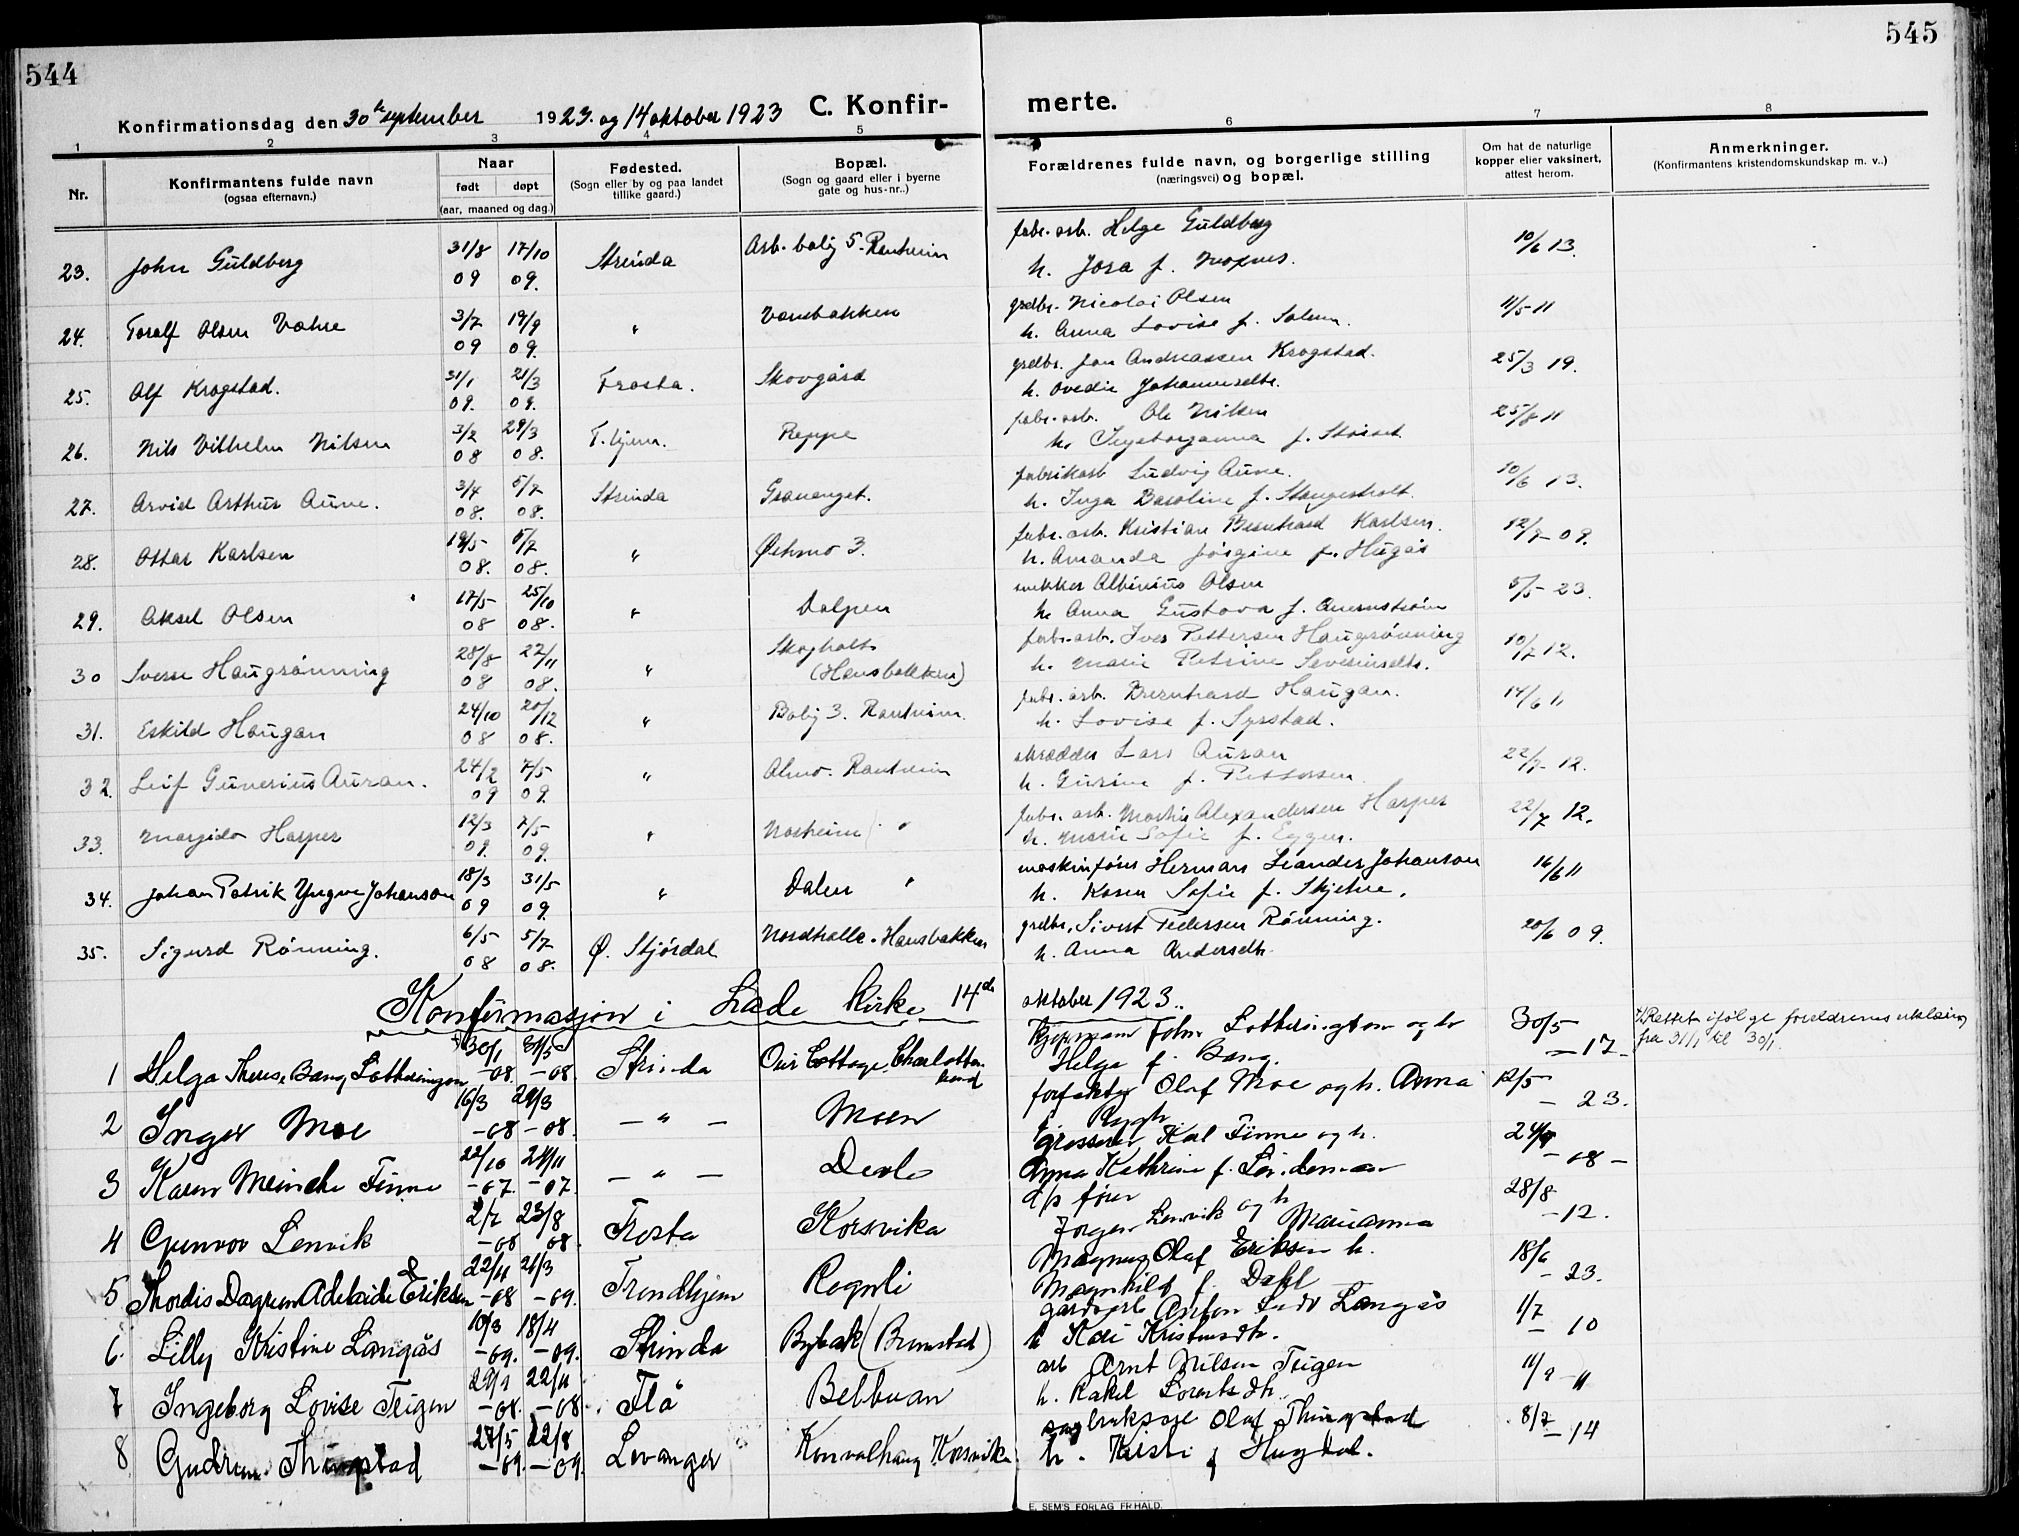 544
545
Konfirmationsdag den 30te september 1923. og 14 oktober 1923 C. Konfir- merte.
1 2 3 4 5 6 7 8
Nr.
Konfirmantens fulde navn
(ogsaa efternavn.)
Naar
født døpt
(aar, maaned og dag.)
Fødested.
(Sogn eller by og paa landet
tillike gaard.)
Bopæl.
(Sogn og gaard eller i byerne
gate og hus-nr..)
Forældrenes fulde navn, og borgerlige stilling
(næringsvei) og bopæl.
Om hat de naturlige
kopper eller vaksinert,
attest herom.
Anmerkninger.
(Konfirmantens kristendomskundskap m. v..)
23. John Guldberg 31/8 09 17/10 09. Strinda Arb. bolig 5. Ranheim fabr. arb. Helge Guldberg
h. Josa f. Moxnes. 10/6 13.
24. Toralf Olsen Væhre 3/7 09 19/9 09. " Værebakken grdbr. Nicolai Olsen
h. Anna Lovise f. Salum. 11/5 11
25. Alf Krogstad. 31/1 09. 21/3 09. Frosta. Skovgård grdbr. Jon Andreassen Krogstad.
h. Ovedie Johannesdtr. 25/3 19.
26. Nils Vilhelm Nilsen 3/2 08 29/3 08. T.hjem. Reppe fabr. arb. Ole Nilsen
h. Ingeborganna f. Storset 25/8 11
27. Arvid Arthur Aune. 3/4 08. 5/7 08. Strinda Granenget. fabrikarb Ludvig Aune.
h. Inga Baroline f. Stongersholt. 10/6 13.
28. Ottar Karlsen 19/5 08. 5/7 08. " Øihmo 3. fabr. arb. Kristian Bernhard Karlsen.
h. Amanda Jörgine f. Hugås 12/9 09.
29. Aksel Olsen 17/5 08 25/10 08. " Dalpen snekker Albinius Olsen
h. Anna Gustava f. Quernström 5/5 23.
30 Sverre Haugrönning 28/8 08 22/11 08. " Skogholt
(Hansbakken) fabr. arb. Iver Pettersen Haugrönning
h. Marie Petrine Severinsdtr. 10/7 12.
31. Eskild Haugan 24/10 08 20/12 08. " Bolig 3. Ranheim. fabr. arb. Bernhard Haugan.
h. Lovise f. Syrstad. 14/6 11
32. Leif Gunerius Auran. 24/2 09 7/5 09. " Olmo. Ranheim skrædder Lars Auran
h. Gurine f. Pettersen. 22/7 12.
33. Margido Harper 12/3 09. 7/5 09. " Norheim " fabr. arb. Martin Alexandersen Harper
h. Marie Sofie f. Eggen. 22/7 12.
34. Johan Patrik Yngve Johanson 18/3 09 31/5 09. " Dalen " maskinförer Herman Leander Johanson
h. Karen Sofie f. Skjetne. 16/6 11
35. Sigurd Rönning. 6/5 08 5/7 08. Ø. Stjördal Nordhalle. Hansbakken grdbr. Sivert Pedersen Rönning.
h. Anna Andersdtr. 20/6 09.
Konfirmasjon i Lade kirke 14de oktober 1923.
1 Helga Therese Bang Lotherington 30/1 -08. 31/5 -08. Strinda Our Cottage. Charlotten
lund kjøpmann John Lotherington og h
Helga f. Bang. 30/5 -17- Rettet ifölge foreldrenes erklæring
fra 31/1 til 30/1.
2 Inger Moe 16/3 -08 29/3 -08. - " - Moen forfatter Olaf Moe og h. Anna
f. Rygh 12/5 - 23.
3 Karen Meincke Finne 22/10 -07. 24/11 -07. - " - Devle grosserer Karl Finne og h.
Anna Kathrine f. Lindeman 24/9 -08-
4 Gunvor Lenvik 2/7 -08 23/8 08. Frosta Korsvika d/s förer
Jörgen Lenvik og h Marianna 28/8 -12.
5 Thordis Dagrun Adelaide Eriksen 22/11 -08 21/3 -09. Trondhjem Rognli Magnus Olaf Eriksen h.
Magnhild f. Dahl 18/6 - 23.
6. Lilly Kristine Langås 10/3 -09. 18/4 -09. Strinda Bybak (Brumstad) gårdbest Anton Ludv Langås
h Kari Kristensdtr. 1/7 - 10
7 Ingeborg Lovise Teigen 29/9 -08. 22/11 -08. Flå Belbuan arb Arnt Nilsen Teigen
h. Rakel Lorntsdtr. 11/9 - 11
8 Gudrun Thingstad 27/5 -09. 22/8 -09. Levanger Konvalhaug Korsvika Olaf Thingstad
h. Kristi f Hugdal. 8/7 - 14
E. SEM'S FORLAG FR HALD.